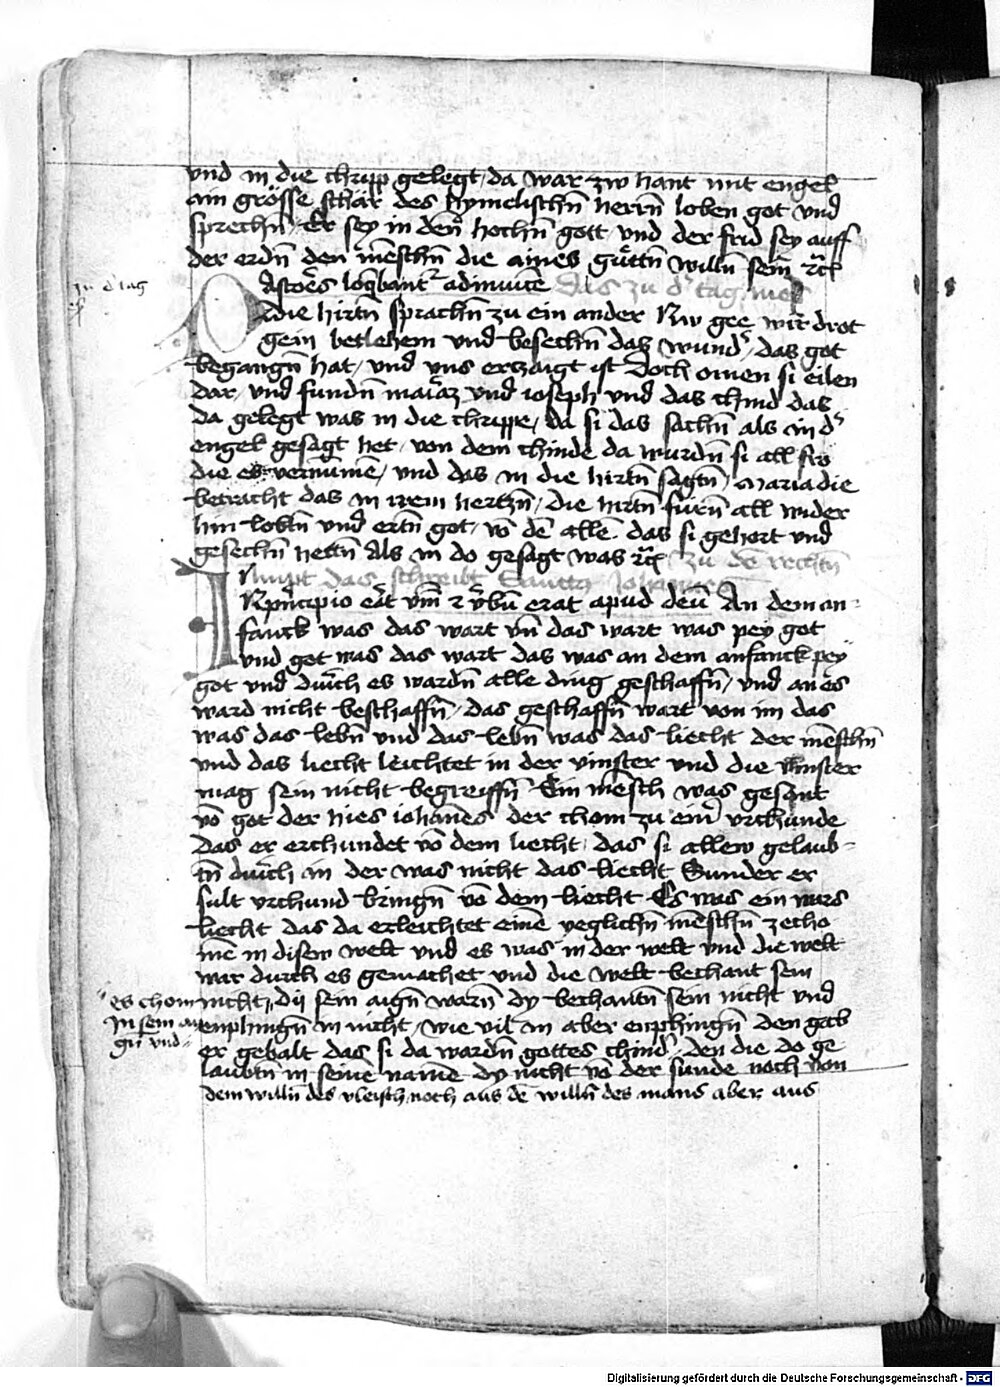 vnd in die chripp gelegt / da war zw hant mit engel
ain grösse schar des hymelischn̄ herrn̄ loben got vnd
sprechn̄ / Er sey in den hochn̄ gott / vnd der frid sey auff
der erdn̄ den menschn̄ die aines gutn̄ willn̄ sein ꝛc̄
In d tag
Astores loq̄bant᷑ adinuicē das zu d᷑ tag mes
die hirtn̄ sprachn̄ zu ein ander Nw gee wir drot
gein betlehem vnd besechn̄ das wund᷑ / das got
begangn̄ hat / vnd vns erczaigt ist Doch si eilen
dar / vnd fundn̄ vnd ioseph vnd das chind das
da gelegt was in die chrippe / da si das sachn̄ als in d᷑
engel gesagt het / von dem chinde da wurdn̄ si all
die es vernume / vnd das in die hirtn̄ sagtn̄ / Maria die
betracht das in irem hertzn̄ / die hirtn̄ furn̄ all wider
hin lobtn̄ vnd ertn̄ got / vō dē allē das si gehort vnd
gesechn̄ hettn̄ Als in do gesagt was ꝛc̄ zu dē rechtn̄
Ampt das schreibt Sanctus Johannes
IN pn̄cipio erāt v᷑m̄ ⁊ v᷑bū erat apud deū An dem an-
fanck was das wart vn̄ das wart was pey got
vnd got was das wart das was an dem anfanck pey
got vnd durch es wardn̄ alle ding geschaffn̄ / vnd an es
ward nicht beschaffn̄ / das geschaffn̄ wart von im das
was das lebn̄ vnd das lebn̄ was das liecht der mēschn̄
vnd das liecht leichtet in der vinster vnd die vinster
mag sein nicht begreiffn̄ Ein mēsch was gesant
vō got der hies iohānes der chom zu eim̄ vrchunde
das er erchundet vō dem liecht / das si allew gelaub-
tn̄ durch in der was nicht das liecht Sunder er
sult vrchund bringn̄ vō dem liecht Es was ein wars
liecht das da erleichtet einē yeglichn̄ mēschn̄ zecho
mē in disew welt vnd es was in der welt vnd die welt
war durch es gemachet vnd die welt bechant sein
nicht / dy sein aign̄ warn̄ dy bechantn̄ sein nicht vnd
es chom
in sein ai
gn̄ vnd
enphingn̄ in nicht / wie vil in aber enphingn̄ den gab
er gebalt das si da wardn̄ gottes chind᷑ / den die do ge
laubtn̄ in seinē namē dy nicht vō der sunde noch von
dem willn̄ des vleisch noch aus dē willn̄ des mans aber aus
Digitalisierung gefördert durch die Deutsche Forschungsgemeinschaft - DFG